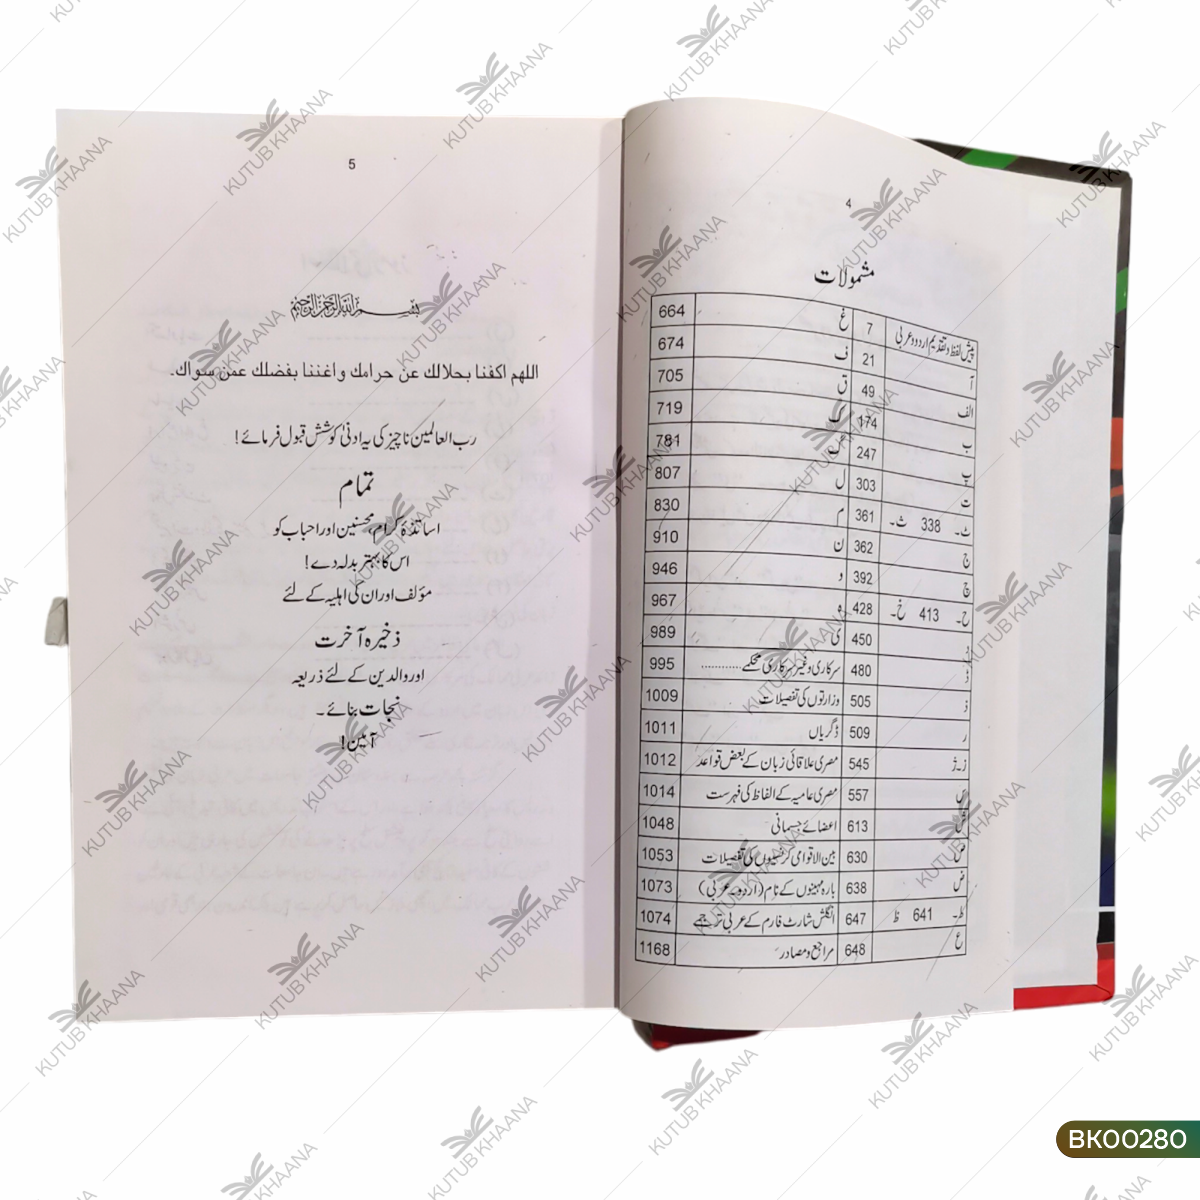 4
مشمولات
پیش لفظ وتقدیم اردو وعربی 7 غ 664
آ 21 ف 674
الف 49 ق 705
ب 174 ک 719
پ 247 گ 781
ت 303 ل 807
ٹ۔ 338 ث۔ 361 م 830
ج 362 ن 910
چ 392 و 946
ح۔ 413 خ۔ 428 ہ 967
د 450 ی 989
ڈ 480 سرکاری وغیر سرکاری محکمے ........... 995
ذ 505 وزارتوں کی تفصیلات 1009
ر 509 ڈگریاں 1011
ز۔ژ 545 مصری علاقائی زبان کے بعض قواعد 1012
س 557 مصری عامیہ کے الفاظ کی فہرست 1014
ش 613 اعضائے جسمانی 1048
ص 630 بین الاقوامی کرنسیوں کی تفصیلات 1053
ض 638 بارہ مہینوں کے نام (اردو۔عربی) 1073
ط۔ 641 ظ 647 انگلش شارٹ فارم کے عربی ترجمے 1074
ع 648 مراجع ومصادر 1168
5
بسم الله الرحمن الرحيم
اللهم اكفنا بحلالك عن حرامك واغننا بفضلك عمن سواك.
رب العالمین ناچیز کی یہ ادنیٰ کوشش قبول فرمائے!
تمام
اساتذۂ کرام، محسنین اور احباب کو
اس کا بہتر بدلہ دے!
مؤلف اور ان کی اہلیہ کے لئے
ذخیرہ آخرت
اور والدین کے لئے ذریعہ
نجات بنائے۔
آمین!
KUTUB KHAANA
BK00280